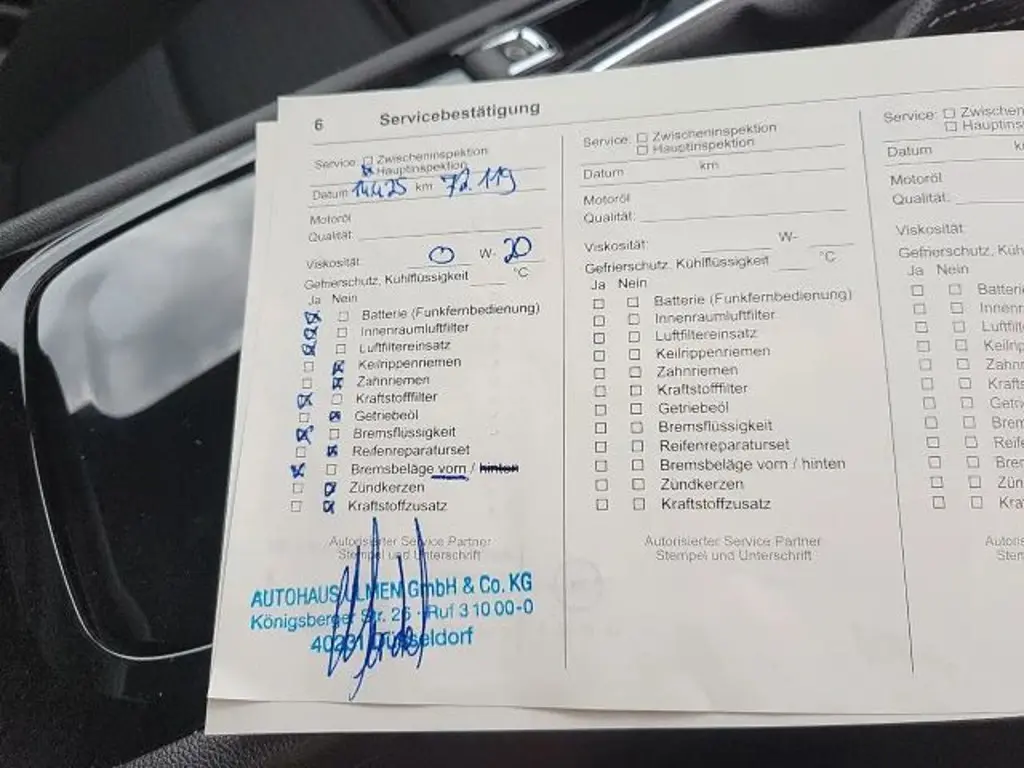 6 Servicebestätigung
Service: ☐ Zwischeninspektion
☒ Hauptinspektion
Datum 14.4.25 km 72.119
Motoröl
Qualität:
Viskosität: 0 W- 20
Gefrierschutz, Kühlflüssigkeit °C
Ja Nein
☒ ☐ Batterie (Funkfernbedienung)
☒ ☐ Innenraumluftfilter
☒ ☐ Luftfiltereinsatz
☐ ☒ Keilrippenriemen
☐ ☒ Zahnriemen
☒ ☐ Kraftstofffilter
☐ ☒ Getriebeöl
☒ ☐ Bremsflüssigkeit
☐ ☒ Reifenreparaturset
☒ ☐ Bremsbeläge vorn / hinten
☐ ☒ Zündkerzen
☐ ☒ Kraftstoffzusatz
Autorisierter Service Partner
Stempel und Unterschrift
AUTOHAUS ULMEN GmbH & Co. KG
Königsberger Str. 26 · Ruf 3 10 00-0
40231 Düsseldorf
Service: ☐ Zwischeninspektion
☐ Hauptinspektion
Datum km
Motoröl
Qualität:
Viskosität: W-
Gefrierschutz, Kühlflüssigkeit °C
Ja Nein
☐ ☐ Batterie (Funkfernbedienung)
☐ ☐ Innenraumluftfilter
☐ ☐ Luftfiltereinsatz
☐ ☐ Keilrippenriemen
☐ ☐ Zahnriemen
☐ ☐ Kraftstofffilter
☐ ☐ Getriebeöl
☐ ☐ Bremsflüssigkeit
☐ ☐ Reifenreparaturset
☐ ☐ Bremsbeläge vorn / hinten
☐ ☐ Zündkerzen
☐ ☐ Kraftstoffzusatz
Autorisierter Service Partner
Stempel und Unterschrift
Service: ☐ Zwischenin
☐ Hauptins
Datum k
Motoröl
Qualität:
Viskosität:
Gefrierschutz, Kühlflüss
Ja Nein
☐ ☐ Batterie
☐ ☐ Innenr
☐ ☐ Luftfilt
☐ ☐ Keilrip
☐ ☐ Zahnr
☐ ☐ Krafts
☐ ☐ Getrie
☐ ☐ Brem
☐ ☐ Reife
☐ ☐ Bre
☐ ☐ Zün
☐ ☐ Kra
Autoris
Ste